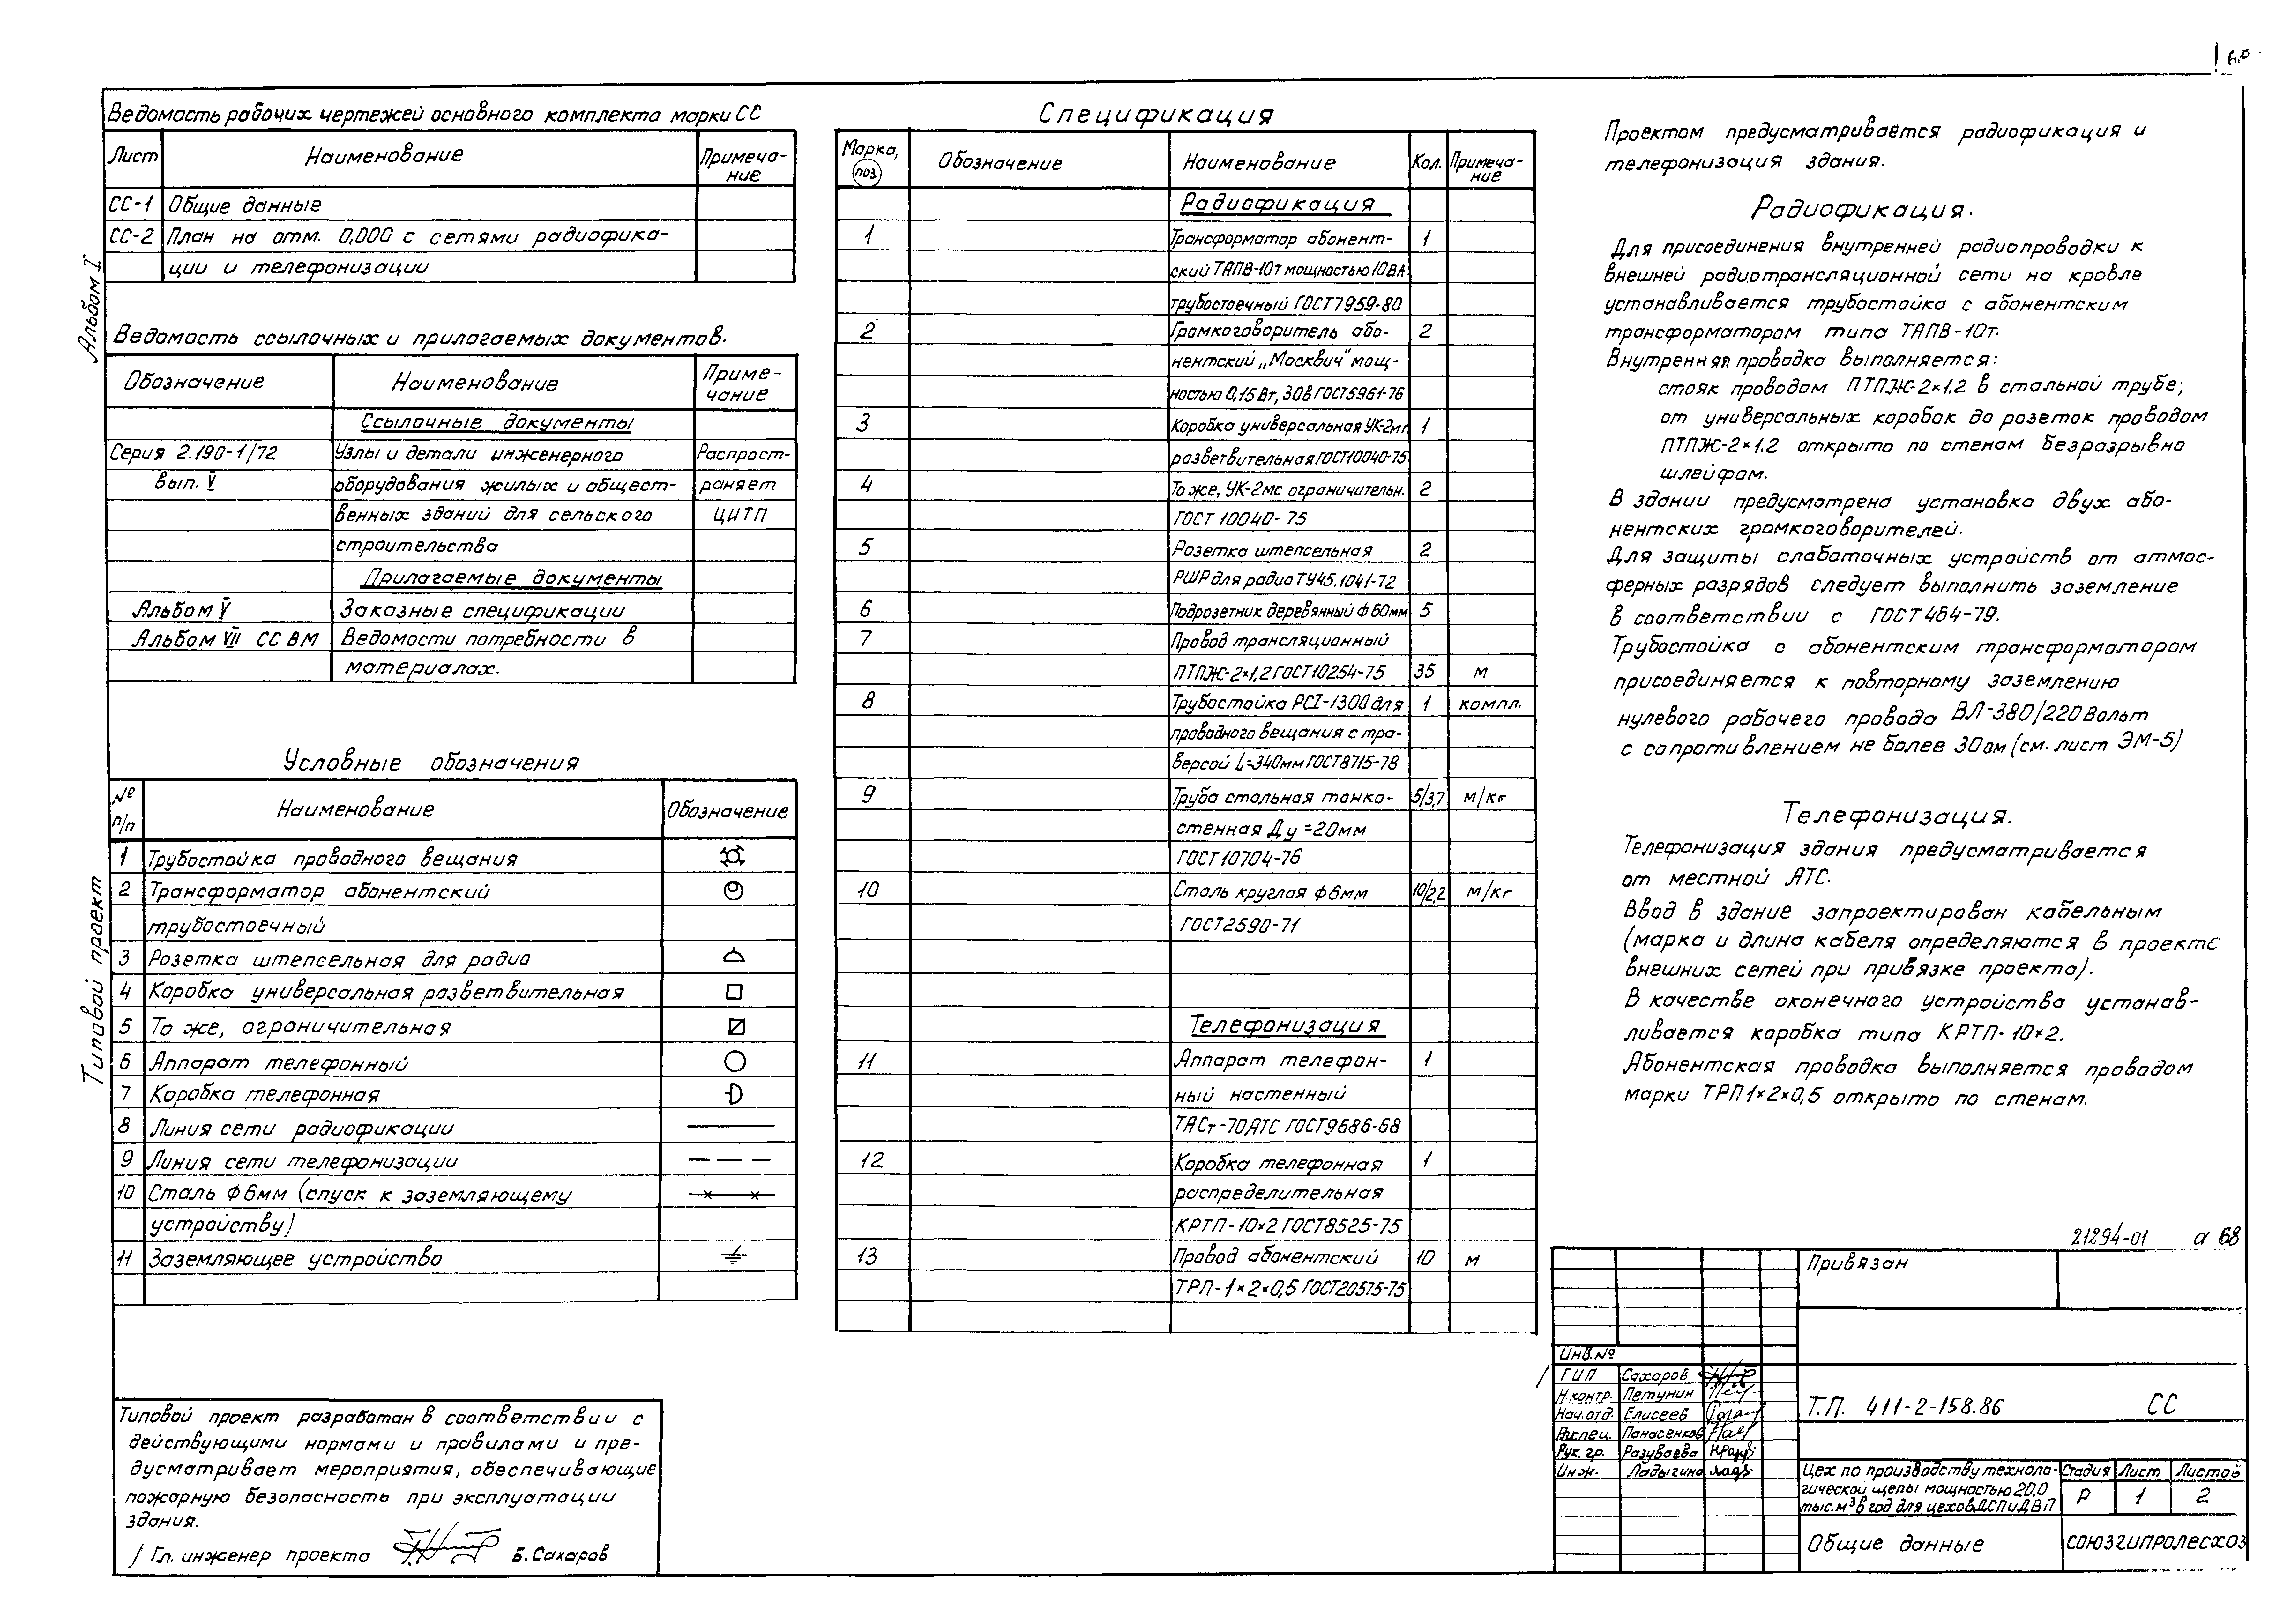 Ведомость рабочих чертежей основного комплекта марки СС
Лист Наименование Примеча-
ние
СС-1 Общие данные
СС-2 План на отм. 0,000 с сетями радиофика-
ции и телефонизации
Альбом I
Ведомость ссылочных и прилагаемых документов.
Обозначение Наименование Приме-
чание
Ссылочные документы
Серия 2.190-1/72 Узлы и детали инженерного Распрост-
вып. V оборудования жилых и общест- раняет
венных зданий для сельского ЦИТП
строительства
Прилагаемые документы
Альбом V Заказные спецификации
Альбом VII СС ВМ Ведомости потребности в
материалах.
Условные обозначения
№ п/п Наименование Обозначение
1 Трубостойка проводного вещания
2 Трансформатор абонентский
трубостоечный
3 Розетка штепсельная для радио
4 Коробка универсальная разветвительная
5 То же, ограничительная
6 Аппарат телефонный
7 Коробка телефонная
8 Линия сети радиофикации
9 Линия сети телефонизации
10 Сталь ф6мм (спуск к заземляющему
устройству)
11 Заземляющее устройство
Типовой проект
Типовой проект разработан в соответствии с
действующими нормами и правилами и пре-
дусматривает мероприятия, обеспечивающие
пожарную безопасность при эксплуатации
здания.
Гл. инженер проекта Б. Сахаров
Спецификация
Марка, поз. Обозначение Наименование Кол. Примеча-
ние
Радиофикация
1 Трансформатор абонент- 1
ский ТАПВ-10т мощностью 10ВА
трубостоечный ГОСТ7959-80
2 Громкоговоритель або- 2
нентский „Москвич" мощ-
ностью 0,15Вт, 30в ГОСТ5961-76
3 Коробка универсальная УК-2мп 1
разветвительная ГОСТ10040-75
4 То же, УК-2мс ограничительн. 2
ГОСТ 10040-75
5 Розетка штепсельная 2
РШР для радио ТУ45.1041-72
6 Подрозетник деревянный ф60мм 5
7 Провод трансляционный
ПТПЖ-2×1,2 ГОСТ10254-75 35 м
8 Трубостойка РСI-1300 для 1 компл.
проводного вещания с тра-
версой L=340мм ГОСТ8715-78
9 Труба стальная тонко- 5/3,7 м/кг
стенная Ду=20мм
ГОСТ10704-76
10 Сталь круглая ф6мм 10/2,2 м/кг
ГОСТ2590-71
Телефонизация
11 Аппарат телефон- 1
ный настенный
ТАСт-70АТС ГОСТ9686-68
12 Коробка телефонная 1
распределительная
КРТП-10×2 ГОСТ8525-75
13 Провод абонентский 10 м
ТРП-1×2×0,5 ГОСТ20575-75
Проектом предусматривается радиофикация и
телефонизация здания.
Радиофикация.
Для присоединения внутренней радиопроводки к
внешней радиотрансляционной сети на кровле
устанавливается трубостойка с абонентским
трансформатором типа ТАПВ-10т.
Внутренняя проводка выполняется:
стояк проводом ПТПЖ-2×1,2 в стальной трубе;
от универсальных коробок до розеток проводом
ПТПЖ-2×1.2 открыто по стенам безразрывно
шлейфом.
В здании предусмотрена установка двух або-
нентских громкоговорителей.
Для защиты слаботочных устройств от атмос-
ферных разрядов следует выполнить заземление
в соответствии с ГОСТ464-79.
Трубостойка с абонентским трансформатором
присоединяется к повторному заземлению
нулевого рабочего провода ВЛ-380/220 Вольт
с сопротивлением не более 30ом (см. лист ЭМ-5)
Телефонизация.
Телефонизация здания предусматривается
от местной АТС.
Ввод в здание запроектирован кабельным
(марка и длина кабеля определяются в проекте
внешних сетей при привязке проекта).
В качестве оконечного устройства устанав-
ливается коробка типа КРТП-10×2.
Абонентская проводка выполняется проводом
марки ТРП1×2×0,5 открыто по стенам.
21294-01 68
Привязан
Инв.№
ГИП Сахаров
Н.контр. Петунин
Нач.отд. Елисеев
Панасенков
Рук. гр. Разуваева
Инж. Ладыгина
Т.П. 411-2-158.86 СС
Цех по производству техноло-
гической щепы мощностью 20,0
тыс.м³ в год для цехов ДСП и ДВП
Стадия Лист Листов
Р 1 2
Общие данные СОЮЗГИПРОЛЕСХОЗ